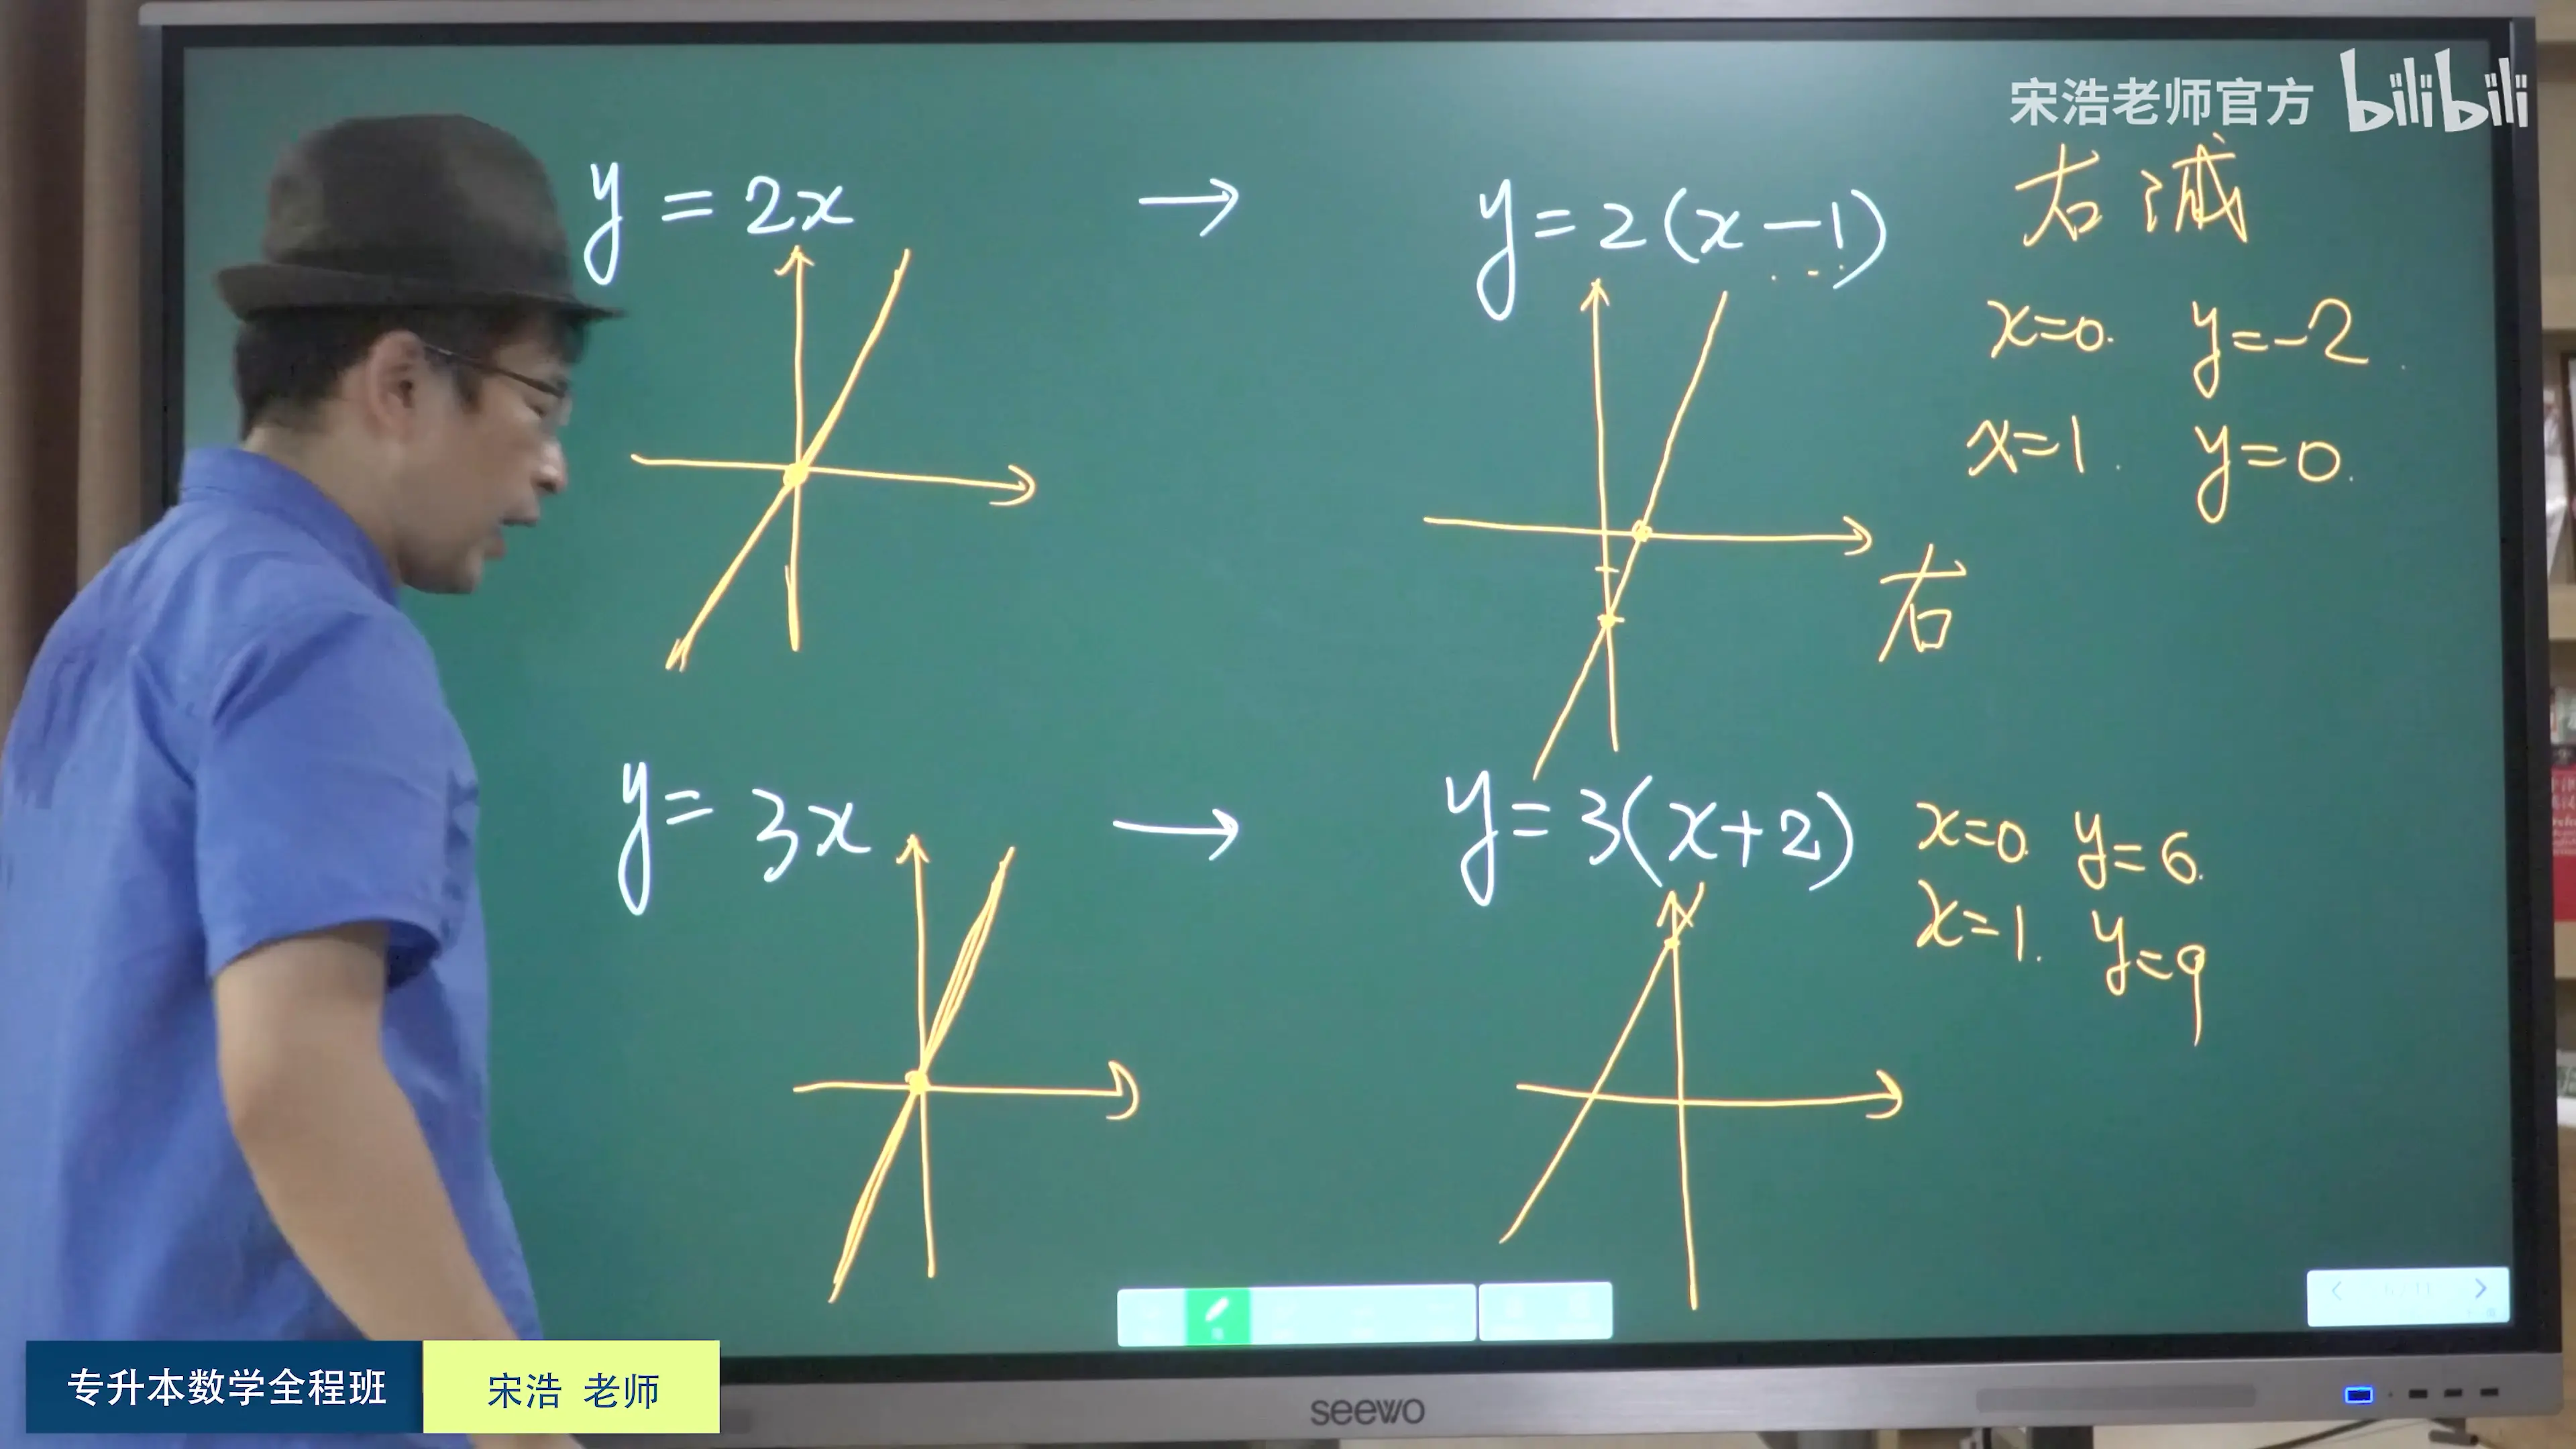 宋浩老师官方 bilibili
y=2x → y=2(x-1) 右减
x=0. y=-2.
x=1. y=0.
右
y=3x → y=3(x+2) x=0. y=6.
x=1. y=9
专升本数学全程班 宋浩 老师
seewo